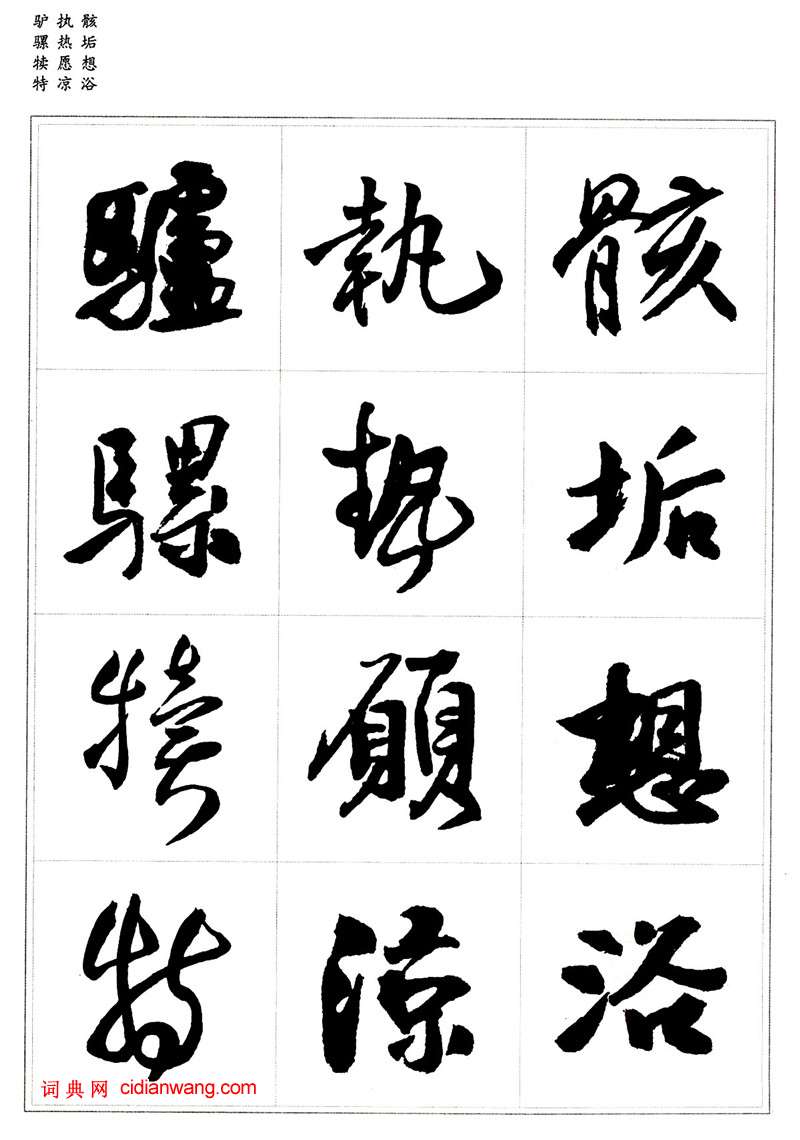 骸垢想浴
执热愿凉
驴骡犊特
骸垢想浴
執热願涼
驢騾犢特
词典网 cidianwang.com